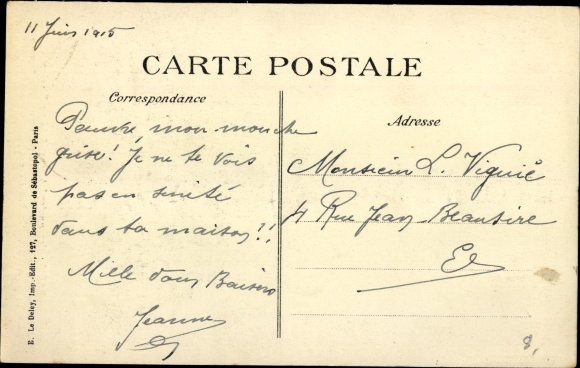 11 Juin 1915
CARTE POSTALE
Correspondance
Pauvre mon mouche
grise! Je ne te vois
pas en
dans ta maison!!
Mille doux Baisers
Jeanne
Adresse
Monsieur L. Viguié
4 Rue Jean Beausire
8,
E. Le Deley, Imp.-Edit., 127, Boulevard de Sébastopol - Paris